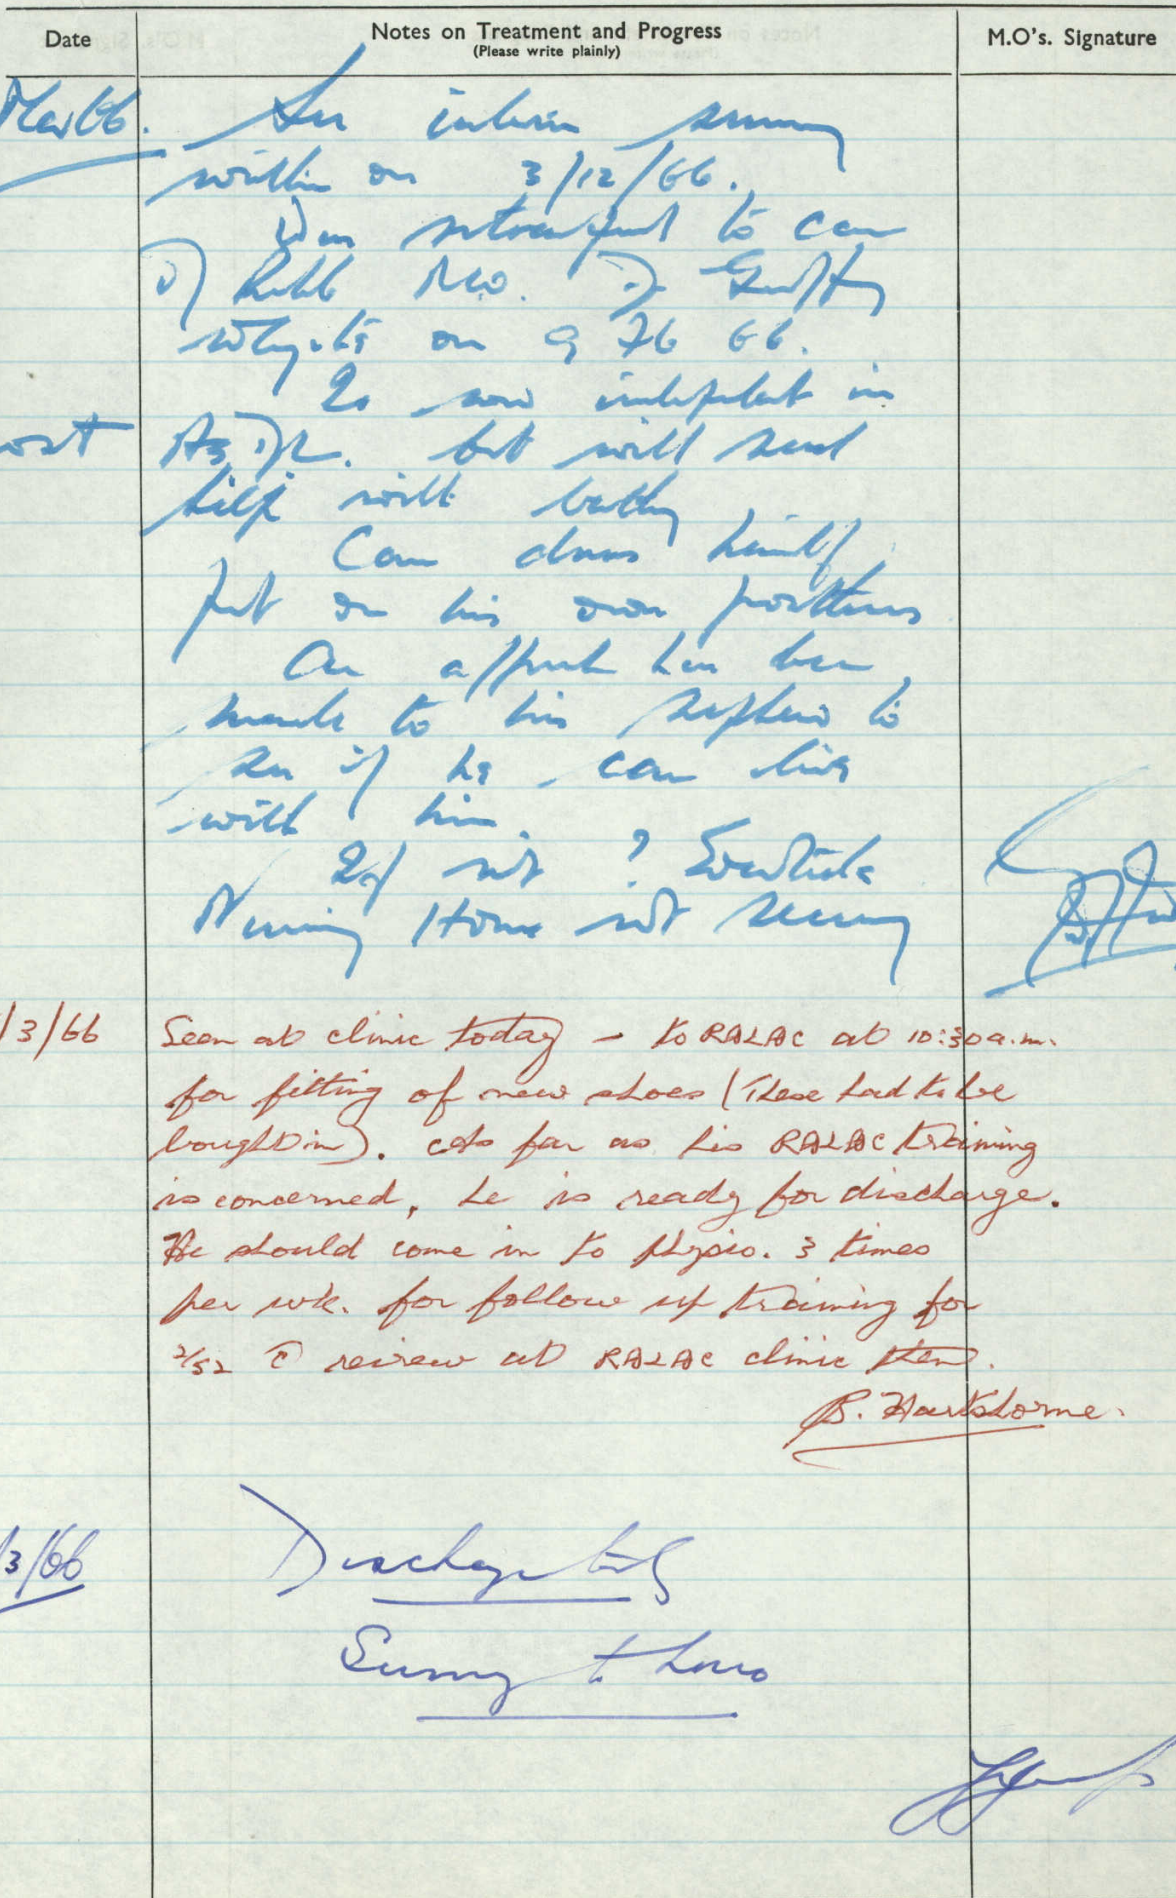 Date Notes on Treatment and Progress M.O's. Signature
(Please write plainly)
Mar 66. See interim summary
written on 3/12/66.
Was to care
of Rehab M.O. Dr
on 9 Feb 66.
Is now independent in
but will need
help with bathing
Can dress himself
put on his own
An approach has been
made to his nephew to
see if he can live
with him.
If not ? Eventide
Nursing Home not
/3/66 Seen at clinic today - to RALAC at 10:30 a.m.
for fitting of new shoes (These had to be
bought in). As far as his RALAC training
is concerned, he is ready for discharge.
He should come in to physio. 3 times
per wk. for follow up training for
2/52 c̄ review at RALAC clinic then.
B. Hartshorne.
3/66 Discharge